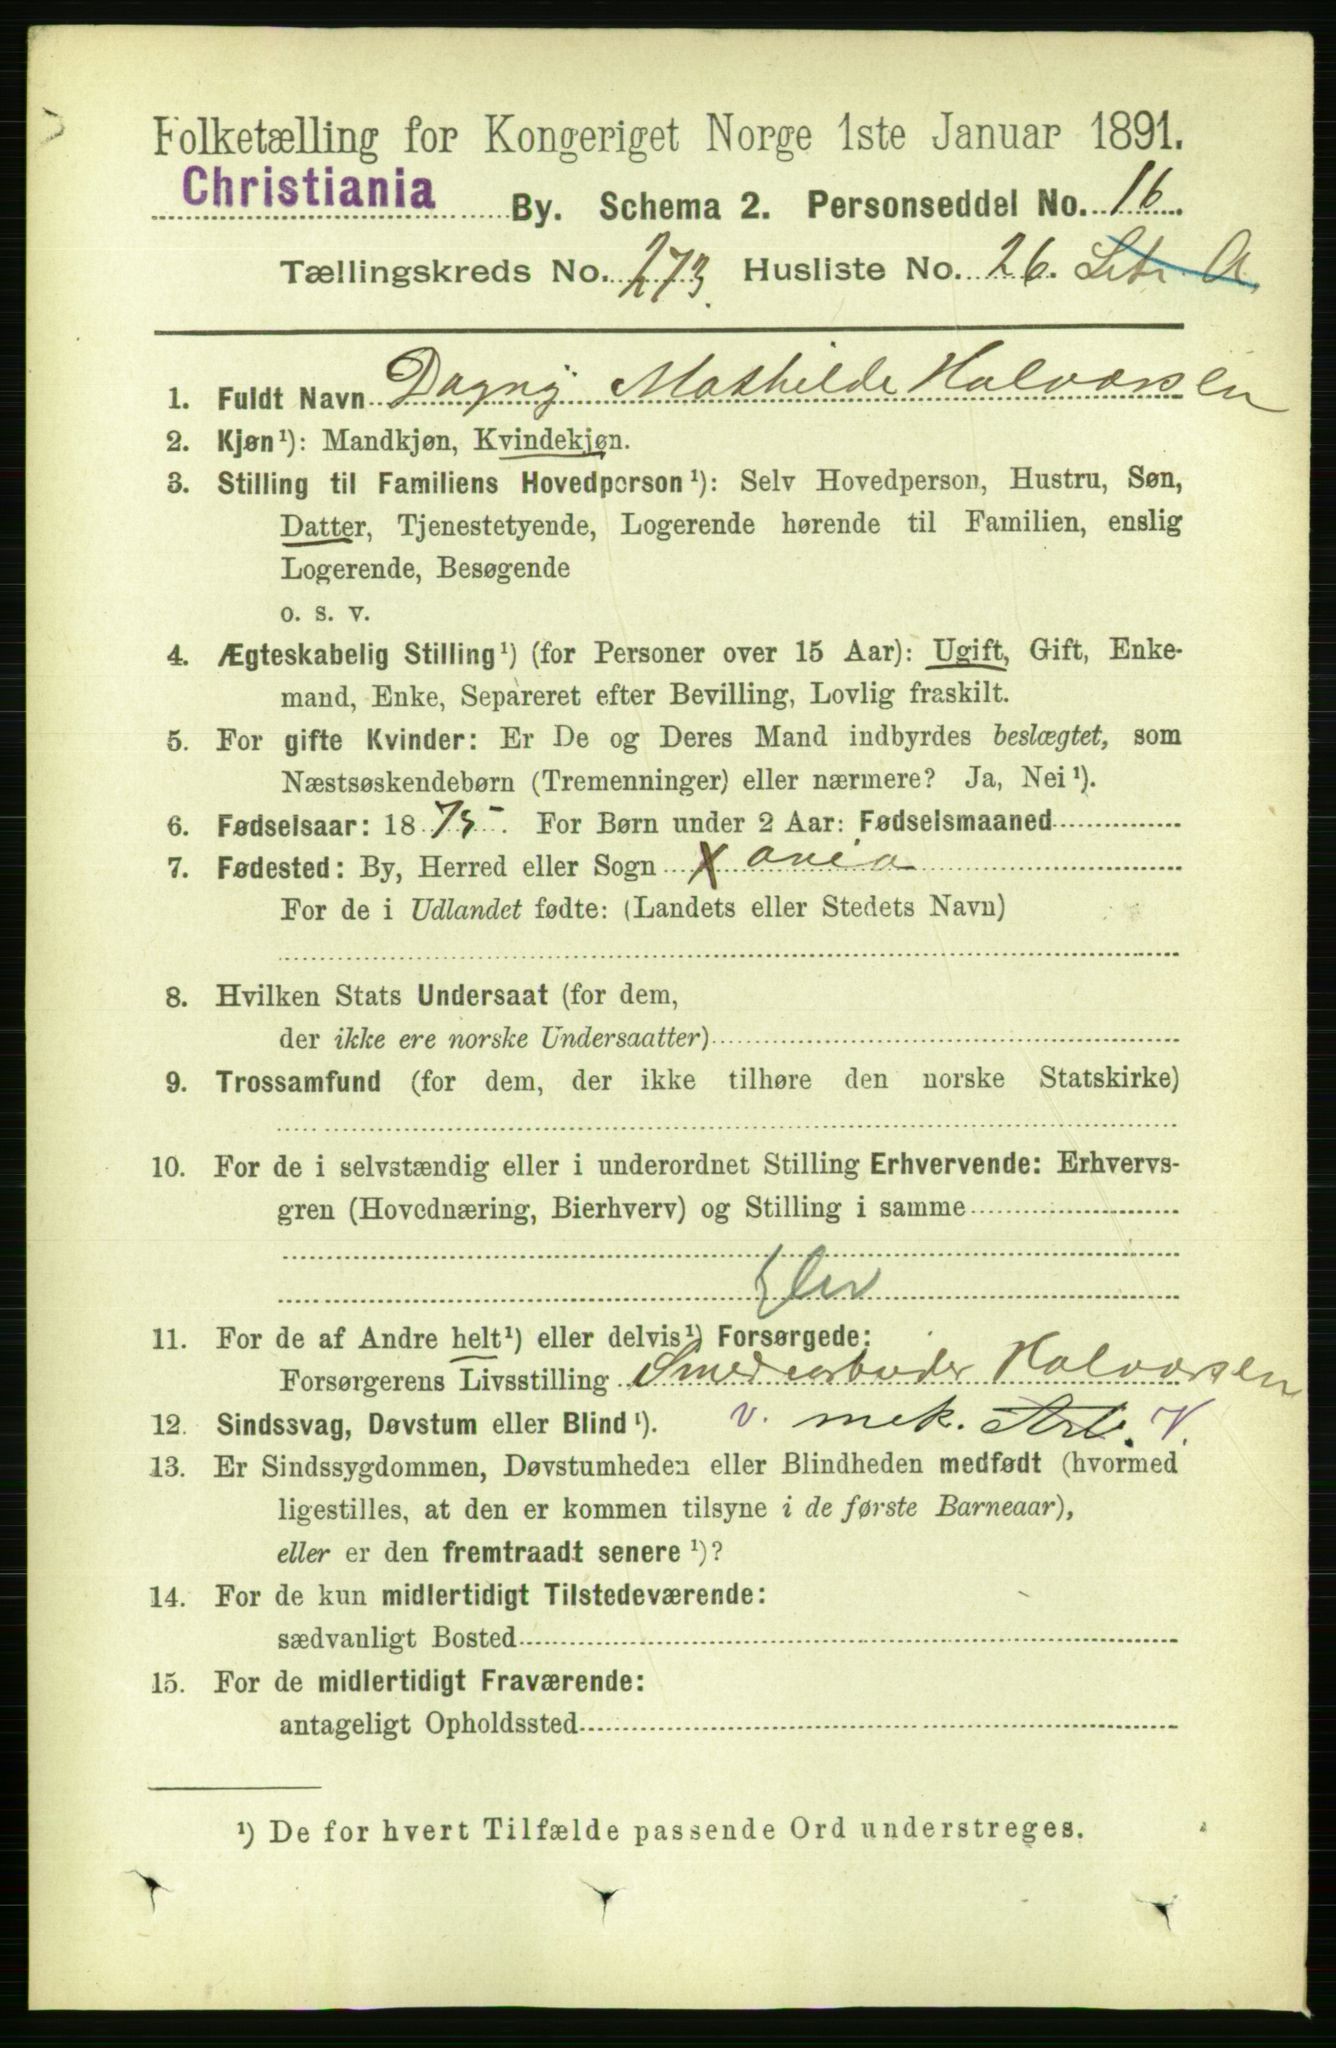 Folketælling for Kongeriget Norge 1ste Januar 1891.
Christiania By. Schema 2. Personseddel No. 16
Tællingskreds No. 273. Husliste No. 26. Litr. A.
1. Fuldt Navn Dagny Mathilde Halvorsen
2. Kjøn¹): Mandkjøn, Kvindekjøn.
3. Stilling til Familiens Hovedperson¹): Selv Hovedperson, Hustru, Søn,
Datter, Tjenestetyende, Logerende hørende til Familien, enslig
Logerende, Besøgende
o. s. v.
4. Ægteskabelig Stilling¹) (for Personer over 15 Aar): Ugift, Gift, Enke-
mand, Enke, Separeret efter Bevilling, Lovlig fraskilt.
5. For gifte Kvinder: Er De og Deres Mand indbyrdes beslægtet, som
Næstsøskendebørn (Tremenninger) eller nærmere? Ja, Nei¹).
6. Fødselsaar: 1875. For Børn under 2 Aar: Fødselsmaaned
7. Fødested: By, Herred eller Sogn Xania
For de i Udlandet fødte: (Landets eller Stedets Navn)
8. Hvilken Stats Undersaat (for dem,
der ikke ere norske Undersaatter)
9. Trossamfund (for dem, der ikke tilhøre den norske Statskirke)
10. For de i selvstændig eller i underordnet Stilling Erhvervende: Erhvervs-
gren (Hovednæring, Bierhverv) og Stilling i samme
Elev
11. For de af Andre helt¹) eller delvis¹) Forsørgede:
Forsørgerens Livsstilling Smedearbeider Halvorsen
12. Sindssvag, Døvstum eller Blind¹). v. mek. Arb. V.
13. Er Sindssygdommen, Døvstumheden eller Blindheden medfødt (hvormed
ligestilles, at den er kommen tilsyne i de første Barneaar),
eller er den fremtraadt senere¹)?
14. For de kun midlertidigt Tilstedeværende:
sædvanligt Bosted
15. For de midlertidigt Fraværende:
antageligt Opholdssted
¹) De for hvert Tilfælde passende Ord understreges.